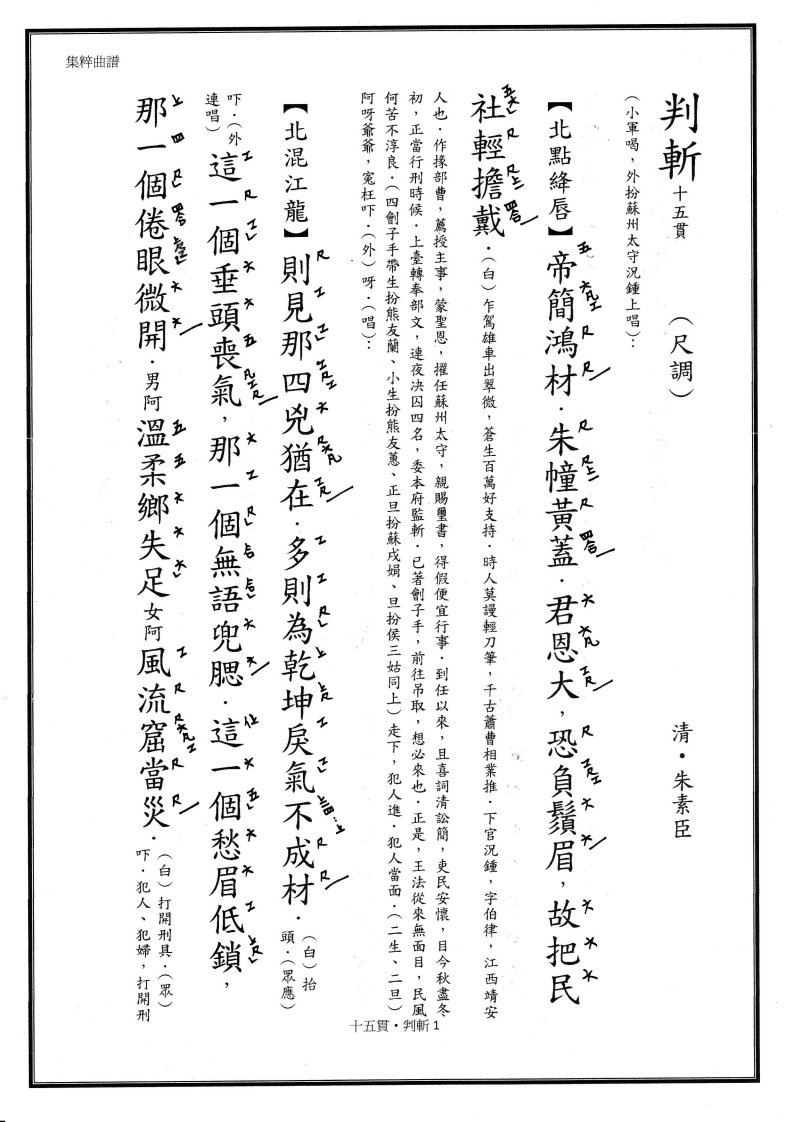 集粹曲譜
判斬 十五貫 （尺調） 清・朱素臣
（小軍喝，外扮蘇州太守況鍾上唱）：
【北點絳唇】帝簡鴻材．朱幢黃蓋．君恩大，恐負鬚眉，故把民
社輕擔戴．（白）乍駕雄車出翠微，蒼生百萬好支持．時人莫謾輕刀筆，千古蕭曹相業推．下官況鍾，字伯律，江西靖安
人也．作掾部曹，薦授主事，蒙聖恩，擢任蘇州太守，親賜璽書，得假便宜行事．到任以來，且喜詞清訟簡，吏民安懷，目今秋盡冬
初，正當行刑時候．上臺轉奉部文，連夜決囚四名，委本府監斬．已著劊子手，前往吊取，想必來也．正是，王法從來無面目，民風
何苦不淳良．（四劊子手帶生扮熊友蘭、小生扮熊友蕙、正旦扮蘇戍娟、旦扮侯三姑同上）走下，犯人進．犯人當面．（二生、二旦）
阿呀爺爺，冤枉吓．（外）呀．（唱）：
【北混江龍】則見那四兇猶在．多則為乾坤戾氣不成材．（白）抬
頭．（眾應）
吓．（外
連唱）這一個垂頭喪氣，那一個無語兜腮．這一個愁眉低鎖，
那一個倦眼微開．男阿溫柔鄉失足女阿風流窟當災．（白）打開刑具．（眾）
吓．犯人、犯婦，打開刑
十五貫・判斬 1